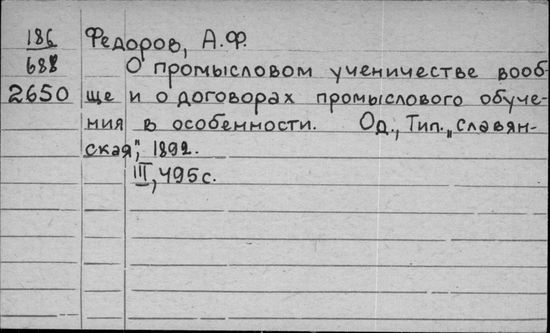 186 Федоров, А.Ф.
688 О промысловом ученичестве вооб-
2650 ще и о договорах промыслового обуче-
ния в особенности. Од., Тип. „славян-
ская", 1892.
III, 495 с.